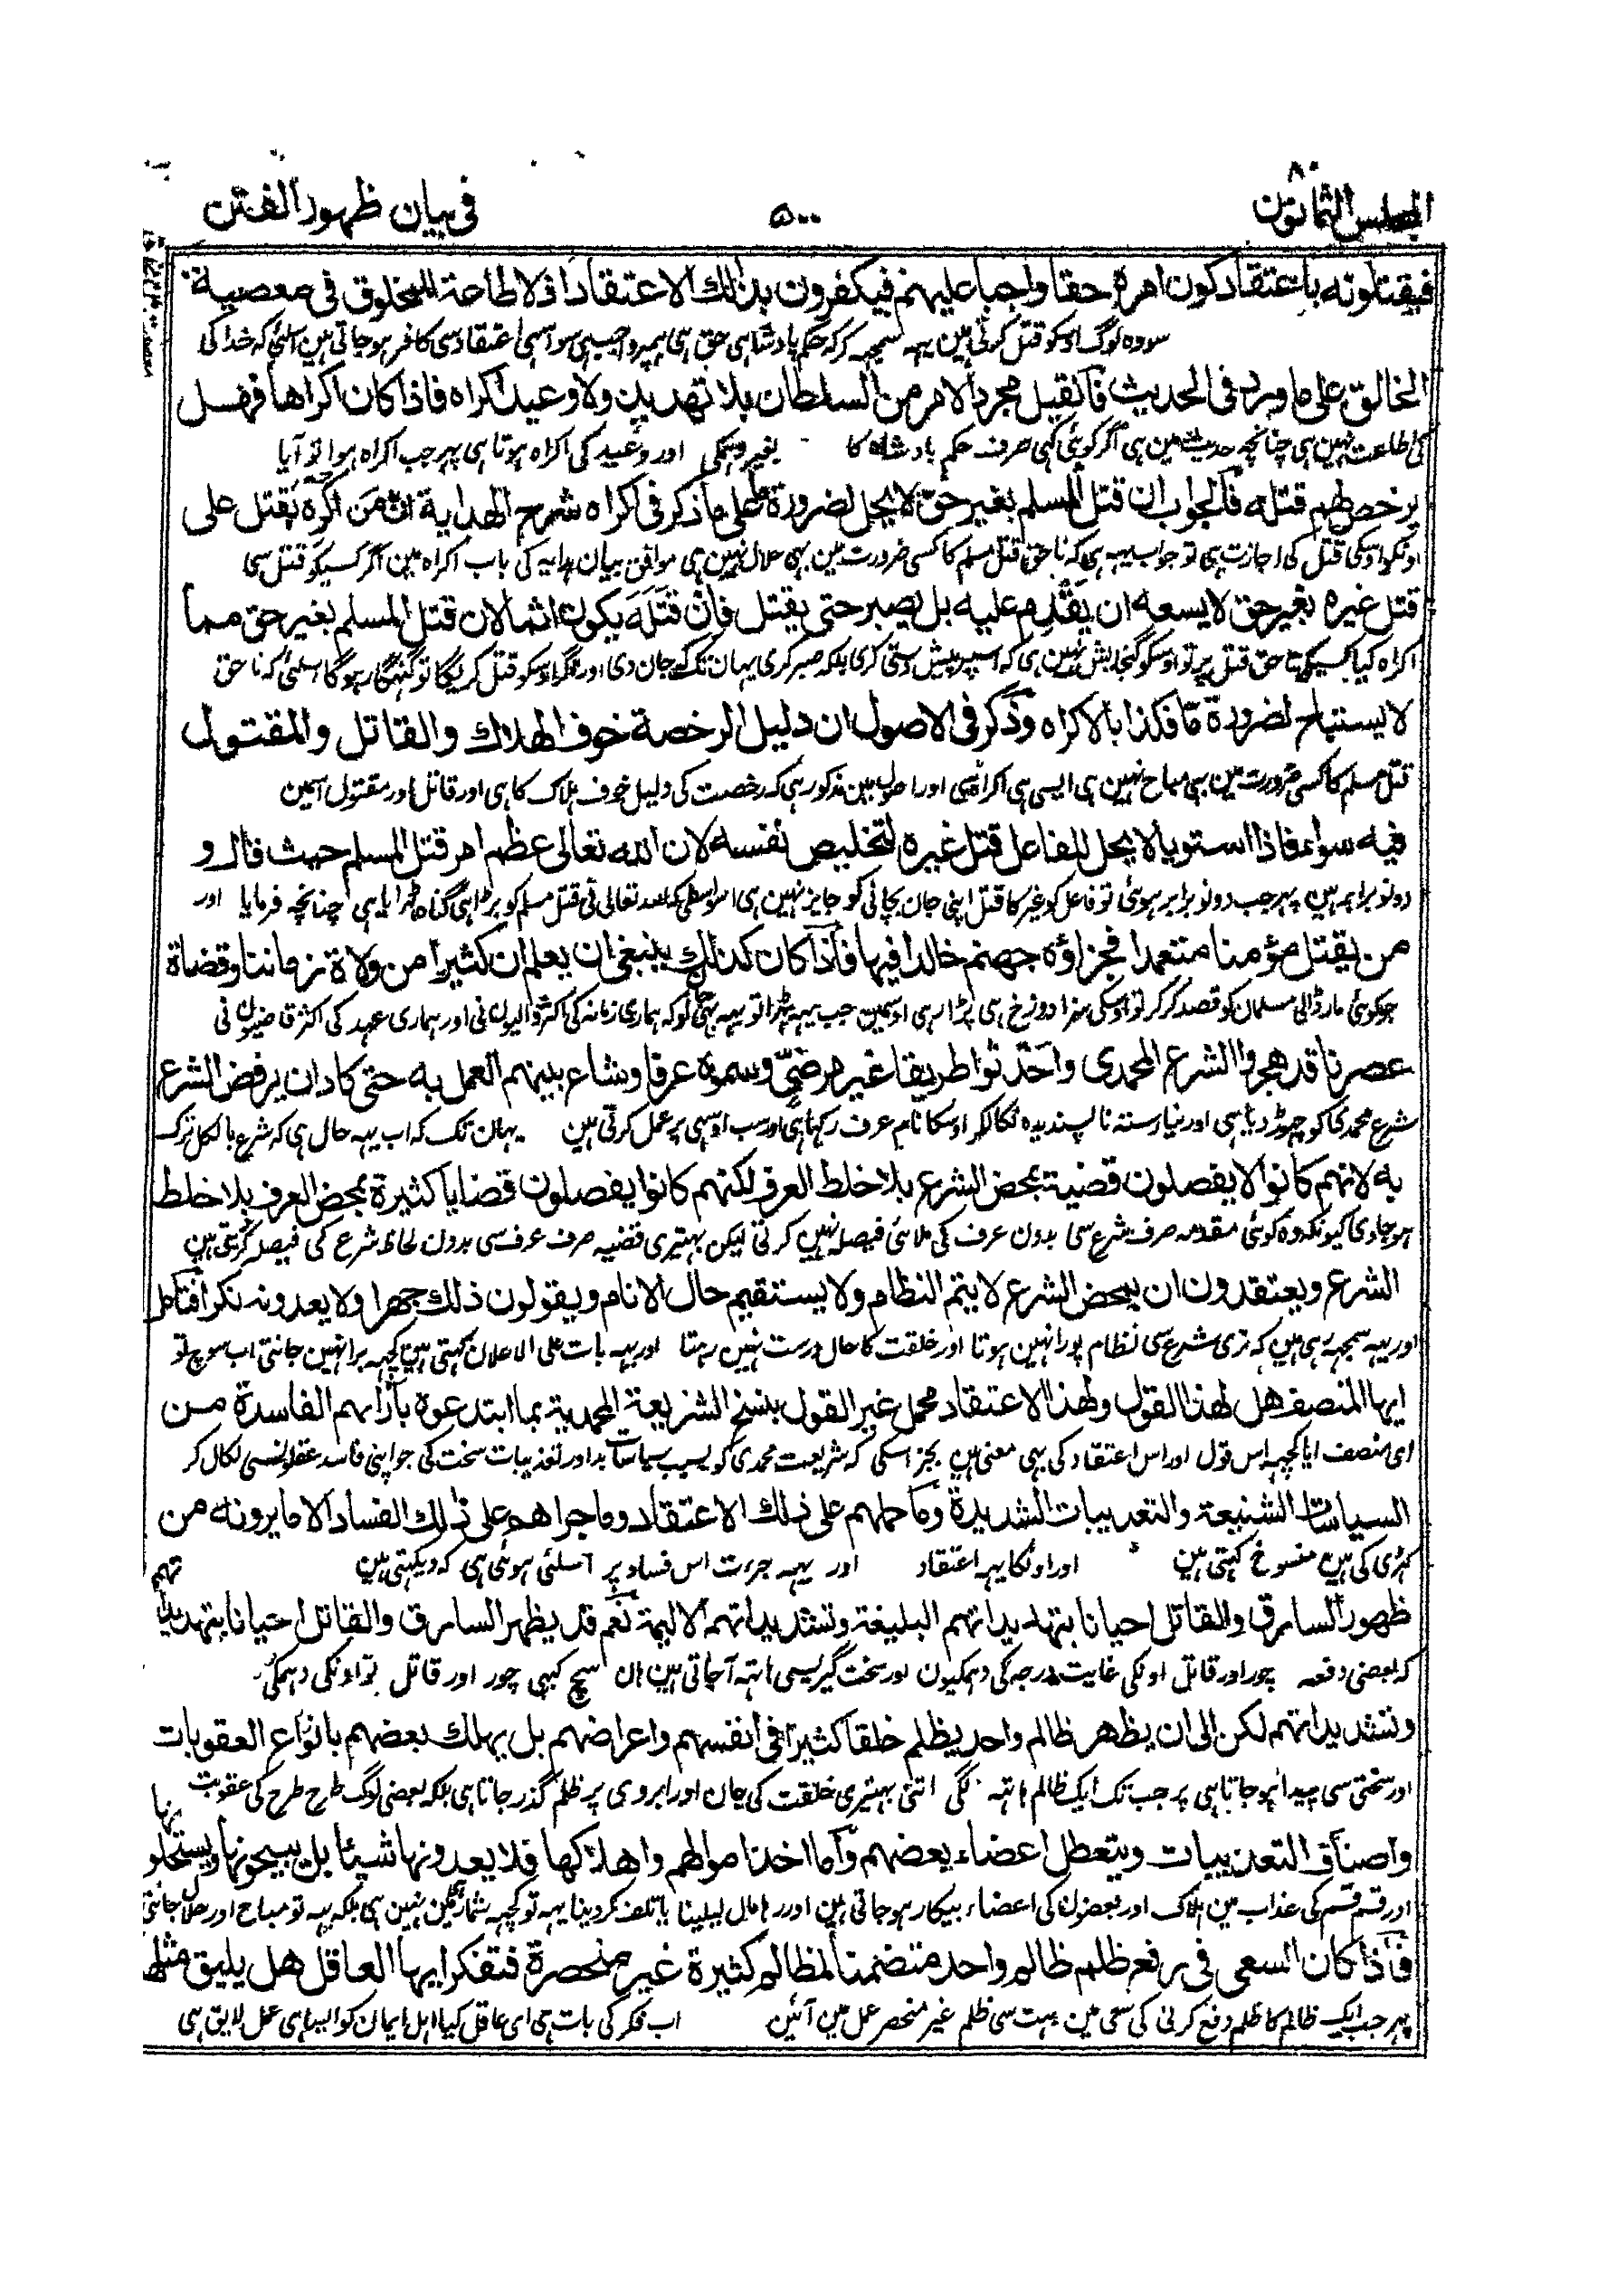 المجلس الثمانون ٥٠٠ فى بيان ظهور الفتن
فيقتلونه باعتقاد كون امره حقا واجبا عليهم فيكفرون بذلك الاعتقاد اذ لا طاعة للمخلوق فى معصية
سو وہ لوگ اوسکو قتل کرتی ہین یہہ سمجہہ کر کہ حکم بادشاہی حق ہی ہمپر واجب ہی سو اسی اعتقاد سی کافر ہو جاتی ہین اسلئی کہ خدا کی
الخالق على ما ورد فى الحديث فان قيل مجرد الامر من السلطان بلا تهديد ولا وعيد اكراه فاذا كان اكراها فهل
کی اطاعت نہین ہی چنانچہ حدیث مین ہی اگر کوئی کہی صرف حکم بادشاہ کا بغیر دہمکی اور وعید کی اکراہ ہوتا ہی پہر جب اکراہ ہوا تو آیا
يرخص لهم قتله فالجواب ان قتل المسلم بغير حق لا يحل لضرورة ما على ما ذكر فى اكراه شرح الهداية ان من اكره بقتل على
اونکو اوسکی قتل کی اجازت ہی تو جواب یہہ ہی کہ ناحق قتل مسلم کا کسی ضرورت مین بہی حلال نہین ہی موافق بیان ہدایہ کی باب اکراہ مین اگر کسیکو قتل سی
قتل غيره بغير حق لا يسعه ان يقدم عليه بل يصبر حتى يقتل فان قتله يكون اثما لان قتل المسلم بغير حق مما
اکراہ کیا کسیکی ناحق قتل پر تو اوسکو گنجایش نہین ہی کہ اسپر پیش دستی کری بلکہ صبر کری یہان تک کہ جان دی اور اگر اوسکو قتل کریگا تو گنہگار ہوگا اسلئی کہ ناحق
لا يستباح لضرورة ما فكذا بالاكراه وذكر فى الاصول ان دليل الرخصة خوف الهلاك والقاتل والمقتول
قتل مسلم کا کسی ضرورت مین بہی مباح نہین ہی ایسی ہی اکراہ سی اور اصول مین مذکور ہی کہ رخصت کی دلیل خوف ہلاک کا ہی اور قاتل اور مقتول اسمین
فيه سواء فاذا استويا لا يحل للفاعل قتل غيره لتخليص نفسه لان الله تعالى عظم امر قتل المسلم حيث قال و
دونو برابر ہین پہر جب دونو برابر ہوئی تو فاعل کو غیر کا قتل اپنی جان بچانی کو جایز نہین ہی اسواسطی کہ اللہ تعالی نی قتل مسلم کو بڑا ہی گناہ ٹہرایا ہی چنانچہ فرمایا اور
من يقتل مؤمنا متعمدا فجزاؤه جهنم خالدا فيها فاذا كان كذلك ينبغى ان يعلم ان كثيرا من ولاة زماننا وقضاة
جو کوئی مار ڈالی مسلمان کو قصد کر کر تو اوسکی سزا دوزخ ہی پڑا رہی اوسمین جب یہہ ٹہرا تو یہہ بہی جانو کہ ہماری زمانہ کی اکثر والیون نی اور ہماری عہد کی اکثر قاضیون نی
عصرنا قد هجروا الشرع المحمدى واخذوا طريقا غير مرضى وسموه عرفا وشاع بينهم العمل به حتى كاد ان يرفض الشرع
شرع محمدی کو چہوڑ دیا ہی اور نیا رستہ ناپسندیدہ نکالکر اوسکا نام عرف رکہا ہی اور سب اوسی پر عمل کرتی ہین یہان تک کہ اب یہہ حال ہی کہ شرع بالکل ترک
به لانهم كانوا لا يفصلون قضية بمحض الشرع بلا خلط العرف لكنهم كانوا يفصلون قضايا كثيرة بمحض العرف بلا خلط
ہو جاوی کیونکہ وہ کوئی مقدمہ صرف شرع سی بدون عرف کی ملائی فیصلہ نہین کرتی لیکن بہتیری قضیہ صرف عرف سی بدون لحاظ شرع کی فیصلہ کرتی ہین
الشرع ويعتقدون ان بمحض الشرع لا يتم النظام ولا يستقيم حال الانام ويقولون ذلك جهرا ولا يعدونه نكرا فتامل
اور یہہ سمجہہ رہی ہین کہ نری شرع سی نظام پورا نہین ہوتا اور خلقت کا حال درست نہین رہتا اور یہہ بات علی الاعلان کہتی ہین کچہہ برا نہین جانتی اب سوچ تو
ايها المنصف هل لهذا القول ولهذا الاعتقاد محمل غير القول بنسخ الشريعة المحمدية بما ابتدعوه بآرائهم الفاسدة من
ای منصف آیا کچہہ اس قول اور اس اعتقاد کی یہی معنی ہین بجز اسکی کہ شریعت محمدی کو بسبب سیاسات بد اور تعذیبات سخت کی جو اپنی فاسد عقلونسی نکال کر
السياسات الشنيعة والتعذيبات الشديدة وما حملهم على ذلك الاعتقاد وما جراهم على ذلك الفساد الا ما يرونه من
کہڑی کی ہین منسوخ کہتی ہین اور اونکا یہہ اعتقاد اور یہہ جرءت اس فساد پر اسلئی ہوئی ہی کہ دیکہتی ہین
ظهور السارق والقاتل احيانا بتهديداتهم البليغة وتشديداتهم الاليمة نعم قد يظهر السارق والقاتل احيانا بتهديداتهم
کہ بعضی دفعہ چور اور قاتل اونکی غایت درجہ کی دہمکیون اور سخت گیریسی ہاتہہ آجاتی ہین ہان سچ کبہی چور اور قاتل تو اونکی دہمکی
وتشديداتهم لكن الى ان يظهر ظالم واحد يظلم خلقا كثيرا فى انفسهم واعراضهم بل يهلك بعضهم بانواع العقوبات
اور سختی سی پیدا ہو جاتا ہی پر جب تک ایک ظالم ہاتہہ لگی اتنی بہتیری خلقت کی جان اور ابروی پر ظلم گذر جاتا ہی بلکہ بعضی لوگ طرح طرح کی عقوبت
واصناف التعذيبات ويتعطل اعضاء بعضهم واما اخذ اموالهم واهلاكها فلا يعدونها شيئا بل يبيحونها ويستحلونها
اور قسم قسم کی عذاب مین ہلاک اور بعضون کی اعضاء بیکار ہو جاتی ہین اور رہا مال لیلینا یا تلف کر دینا یہہ تو کچہہ شمار مین نہین ہی بلکہ یہہ تو مباح اور حلال جانتی
فاذا كان السعى فى رفع ظلم ظالم واحد متضمنا لمظالم كثيرة غير منحصرة فتفكر ايها العاقل هل يليق مثله
پہر جب ایک ظالم کا ظلم دفع کرنی کی سعی مین بہت سی ظلم غیر منحصر عمل مین آئین اب فکر کی بات ہی ای عاقل کیا اہل ایمان کو ایسا ہی عمل لایق ہی